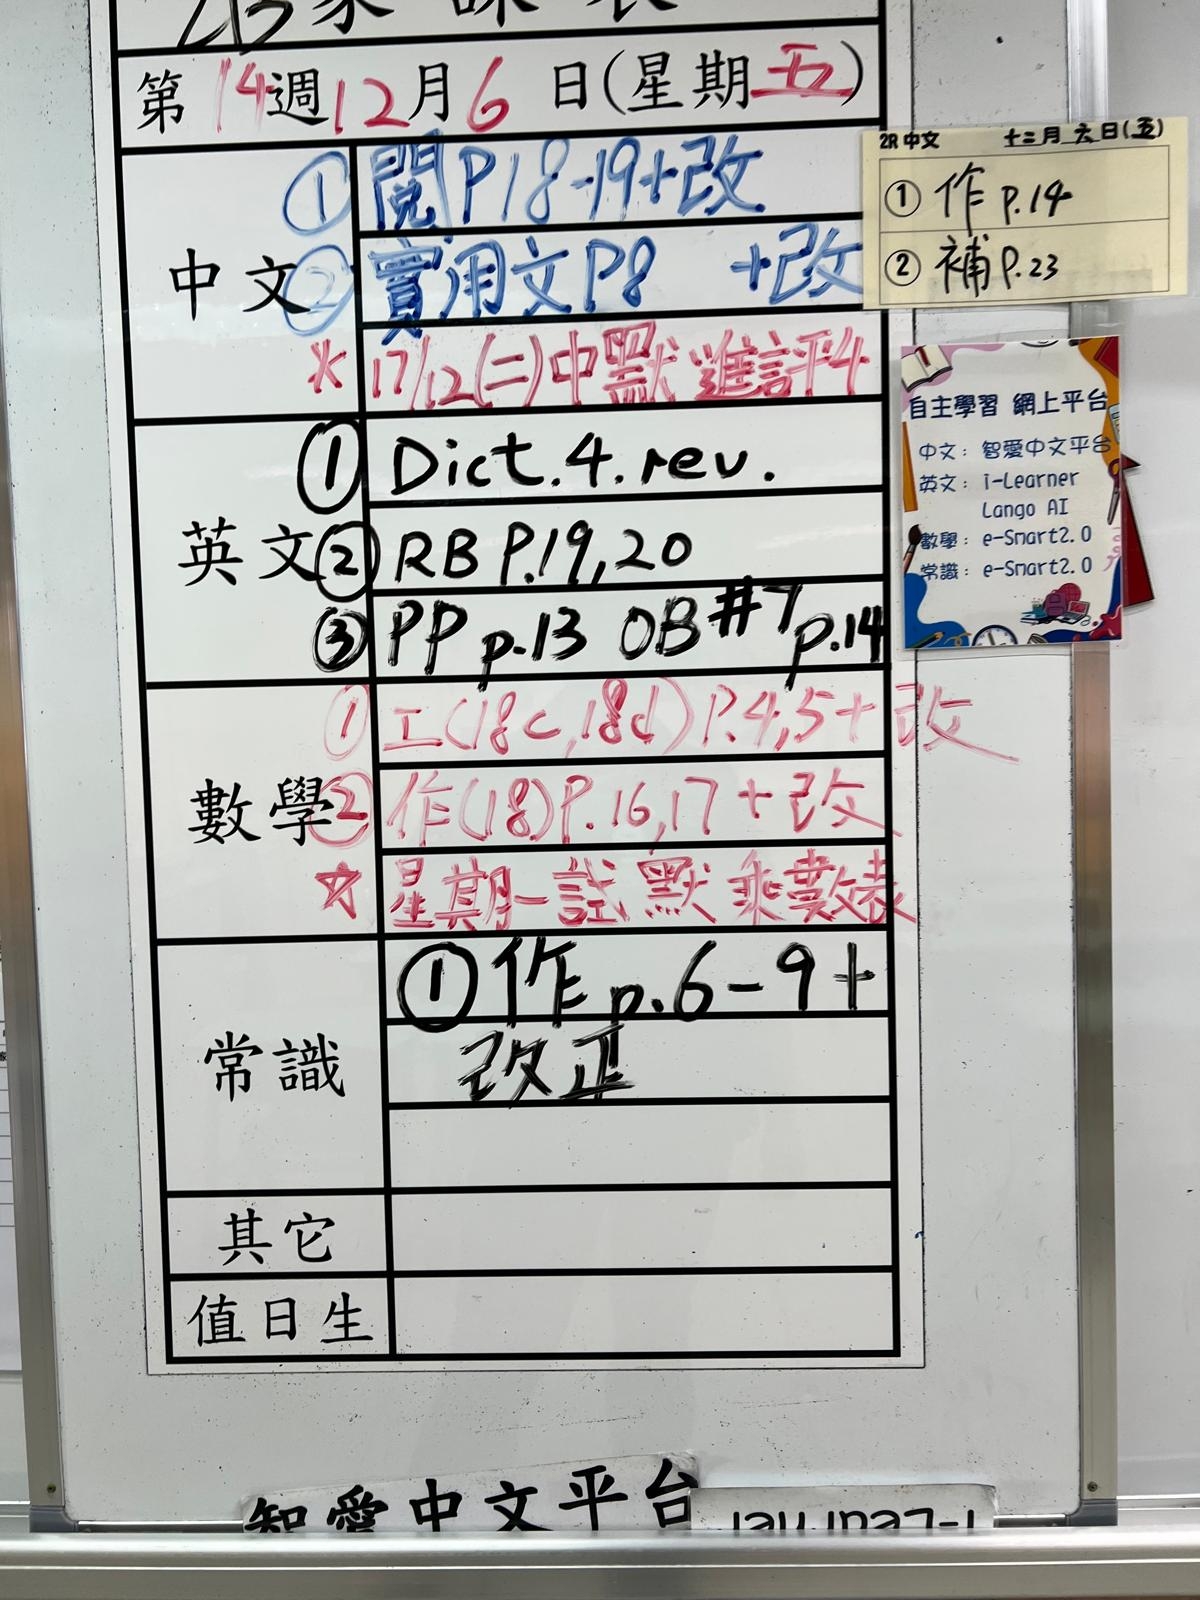 2B家課表
第14週12月6日(星期五)
中文
① 閱P18-19+改
② 實用文P8 +改
* 17/12(二)中默 進評4
英文
① Dict.4.rev.
② RB P.19,20
③ PP p.13 OB#7 p.14
數學
① 工(18c,18d)P.4,5+改
② 作(18)P.16,17+改
☆ 星期一試默乘數表
常識
① 作p.6-9+
改正
其它
值日生
2R中文 十二月六日(五)
① 作p.14
② 補P.23
自主學習 網上平台
中文：智愛中文平台
英文：i-Learner
Lango AI
數學：e-Smart2.0
常識：e-Smart2.0
智愛中文平台
i-Learner